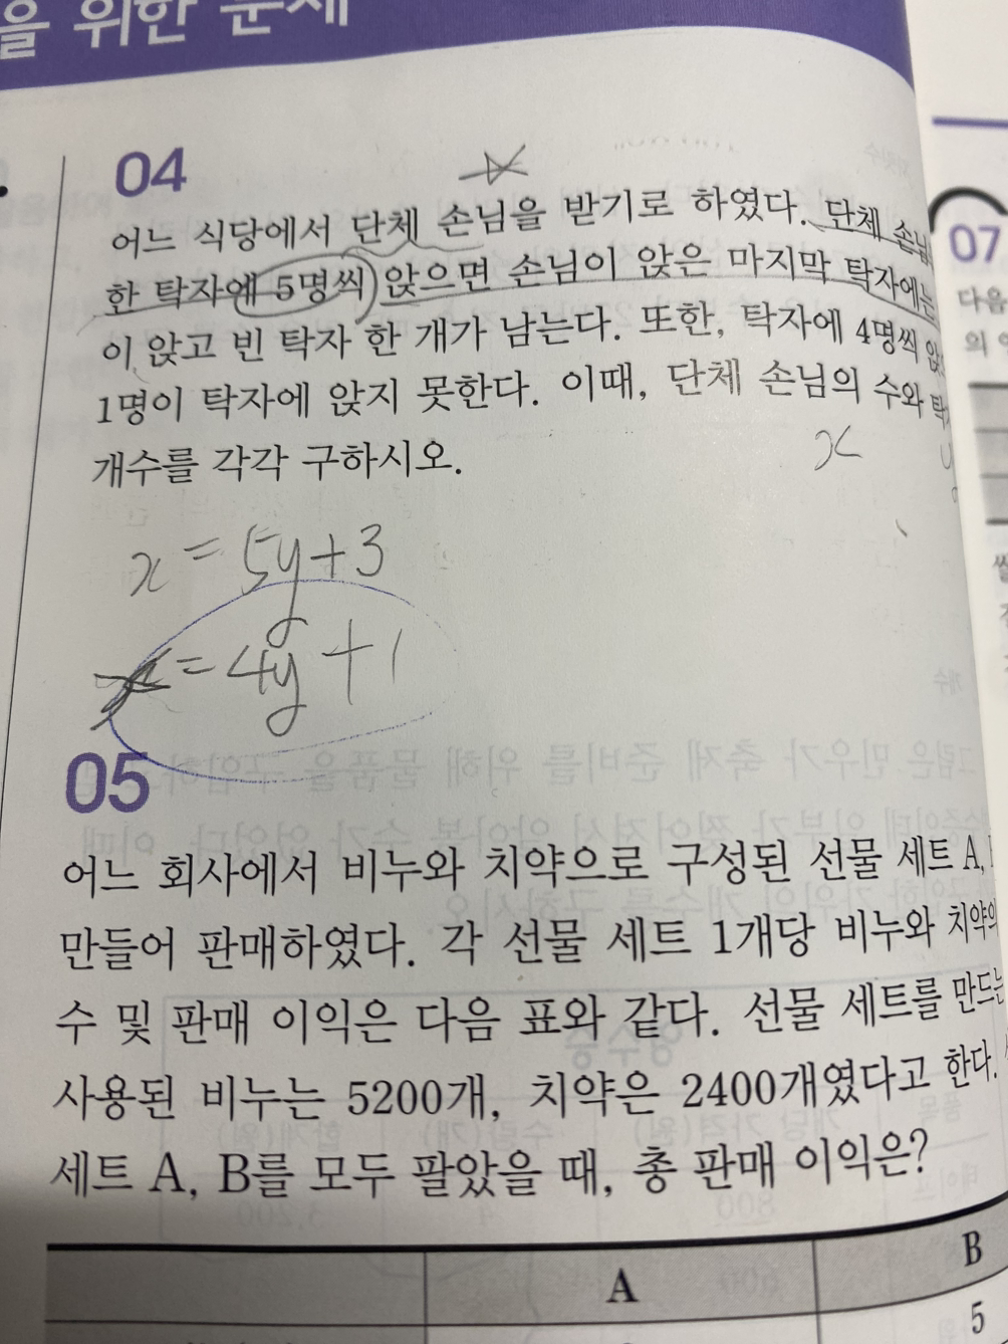 을 위한 문제
04
어느 식당에서 단체 손님을 받기로 하였다. 단체 손님
한 탁자에 5명씩 앉으면 손님이 앉은 마지막 탁자에는
이 앉고 빈 탁자 한 개가 남는다. 또한, 탁자에 4명씩
1명이 탁자에 앉지 못한다. 이때, 단체 손님의 수와
개수를 각각 구하시오.
x y
x = 5y+3
x = 4y+1
05
어느 회사에서 비누와 치약으로 구성된 선물 세트 A,
만들어 판매하였다. 각 선물 세트 1개당 비누와 치약의
수 및 판매 이익은 다음 표와 같다. 선물 세트를 만드는
사용된 비누는 5200개, 치약은 2400개였다고 한다.
세트 A, B를 모두 팔았을 때, 총 판매 이익은?
A B
5
07
다음
의